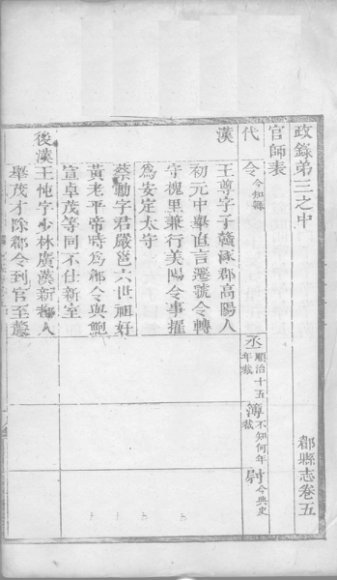 政錄弟三之中　郿縣志卷五
官師表
代　令今知縣　丞順治十五年裁　簿不知何年裁　尉今典史
漢　王尊字子贛涿郡高陽人
初元中舉直言遷虢令轉
守槐里兼行美陽令事擢
為安定太守
蔡勳字君嚴邕六世祖好
黃老平帝時為郿令與鮑
宣卓茂等同不仕新室
後漢　王忳字少林廣漢新都人
舉茂才除郿令到官至斄